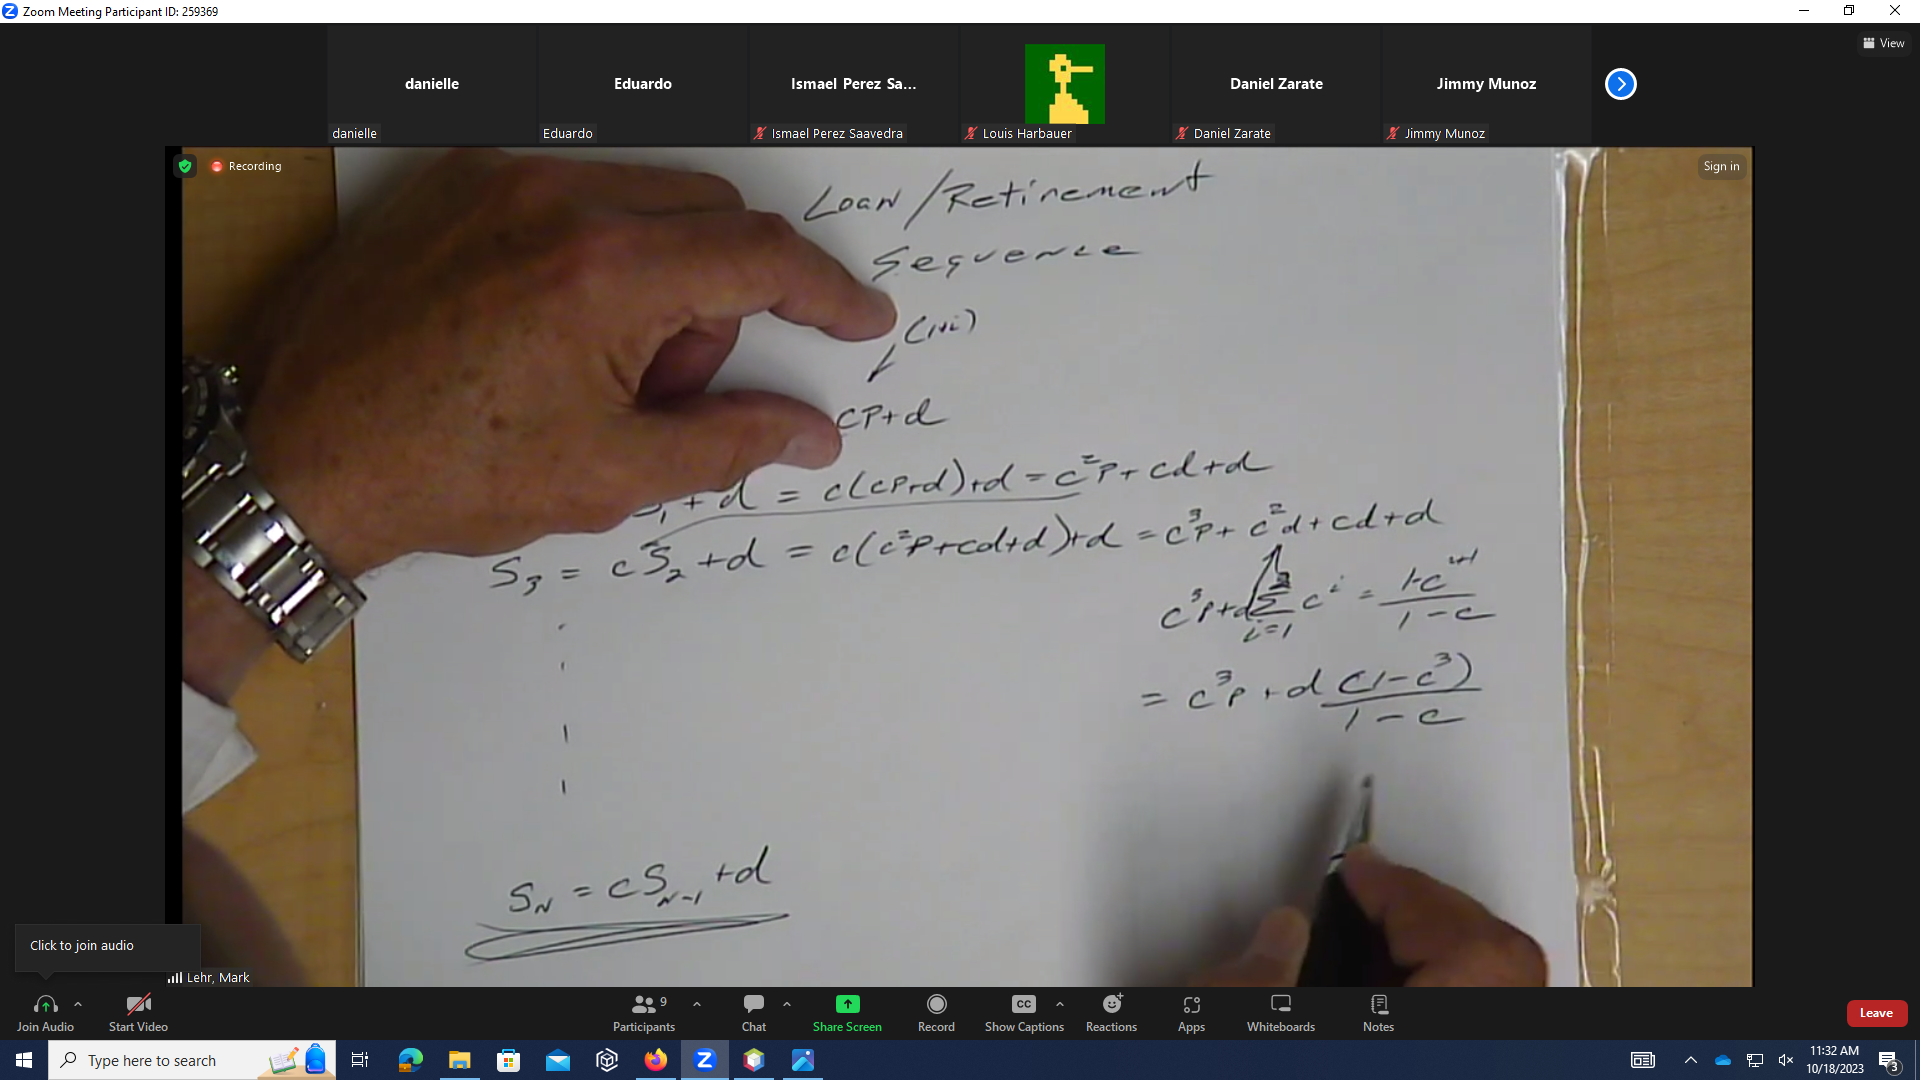 Zoom Meeting Participant ID: 259369
View
danielle
Eduardo
Ismael Perez Sa...
Daniel Zarate
Jimmy Munoz
danielle
Eduardo
Ismael Perez Saavedra
Louis Harbauer
Daniel Zarate
Jimmy Munoz
Recording
Sign in
Loan/Retirement
Sequence
(1+i)
CP+d
S₁ + d = c(cP+d)+d = c²P + cd + d
S₃ = cS₂ + d = c(c²P+cd+d)+d = c³P + c²d + cd + d
= c³P + d (1-c³)
1-c
S_N = cS_N-1 + d
Click to join audio
Lehr, Mark
Join Audio
Start Video
Participants
9
Chat
Share Screen
Record
CC
Show Captions
Reactions
Apps
Whiteboards
Notes
Leave
Type here to search
11:32 AM
10/18/2023
3